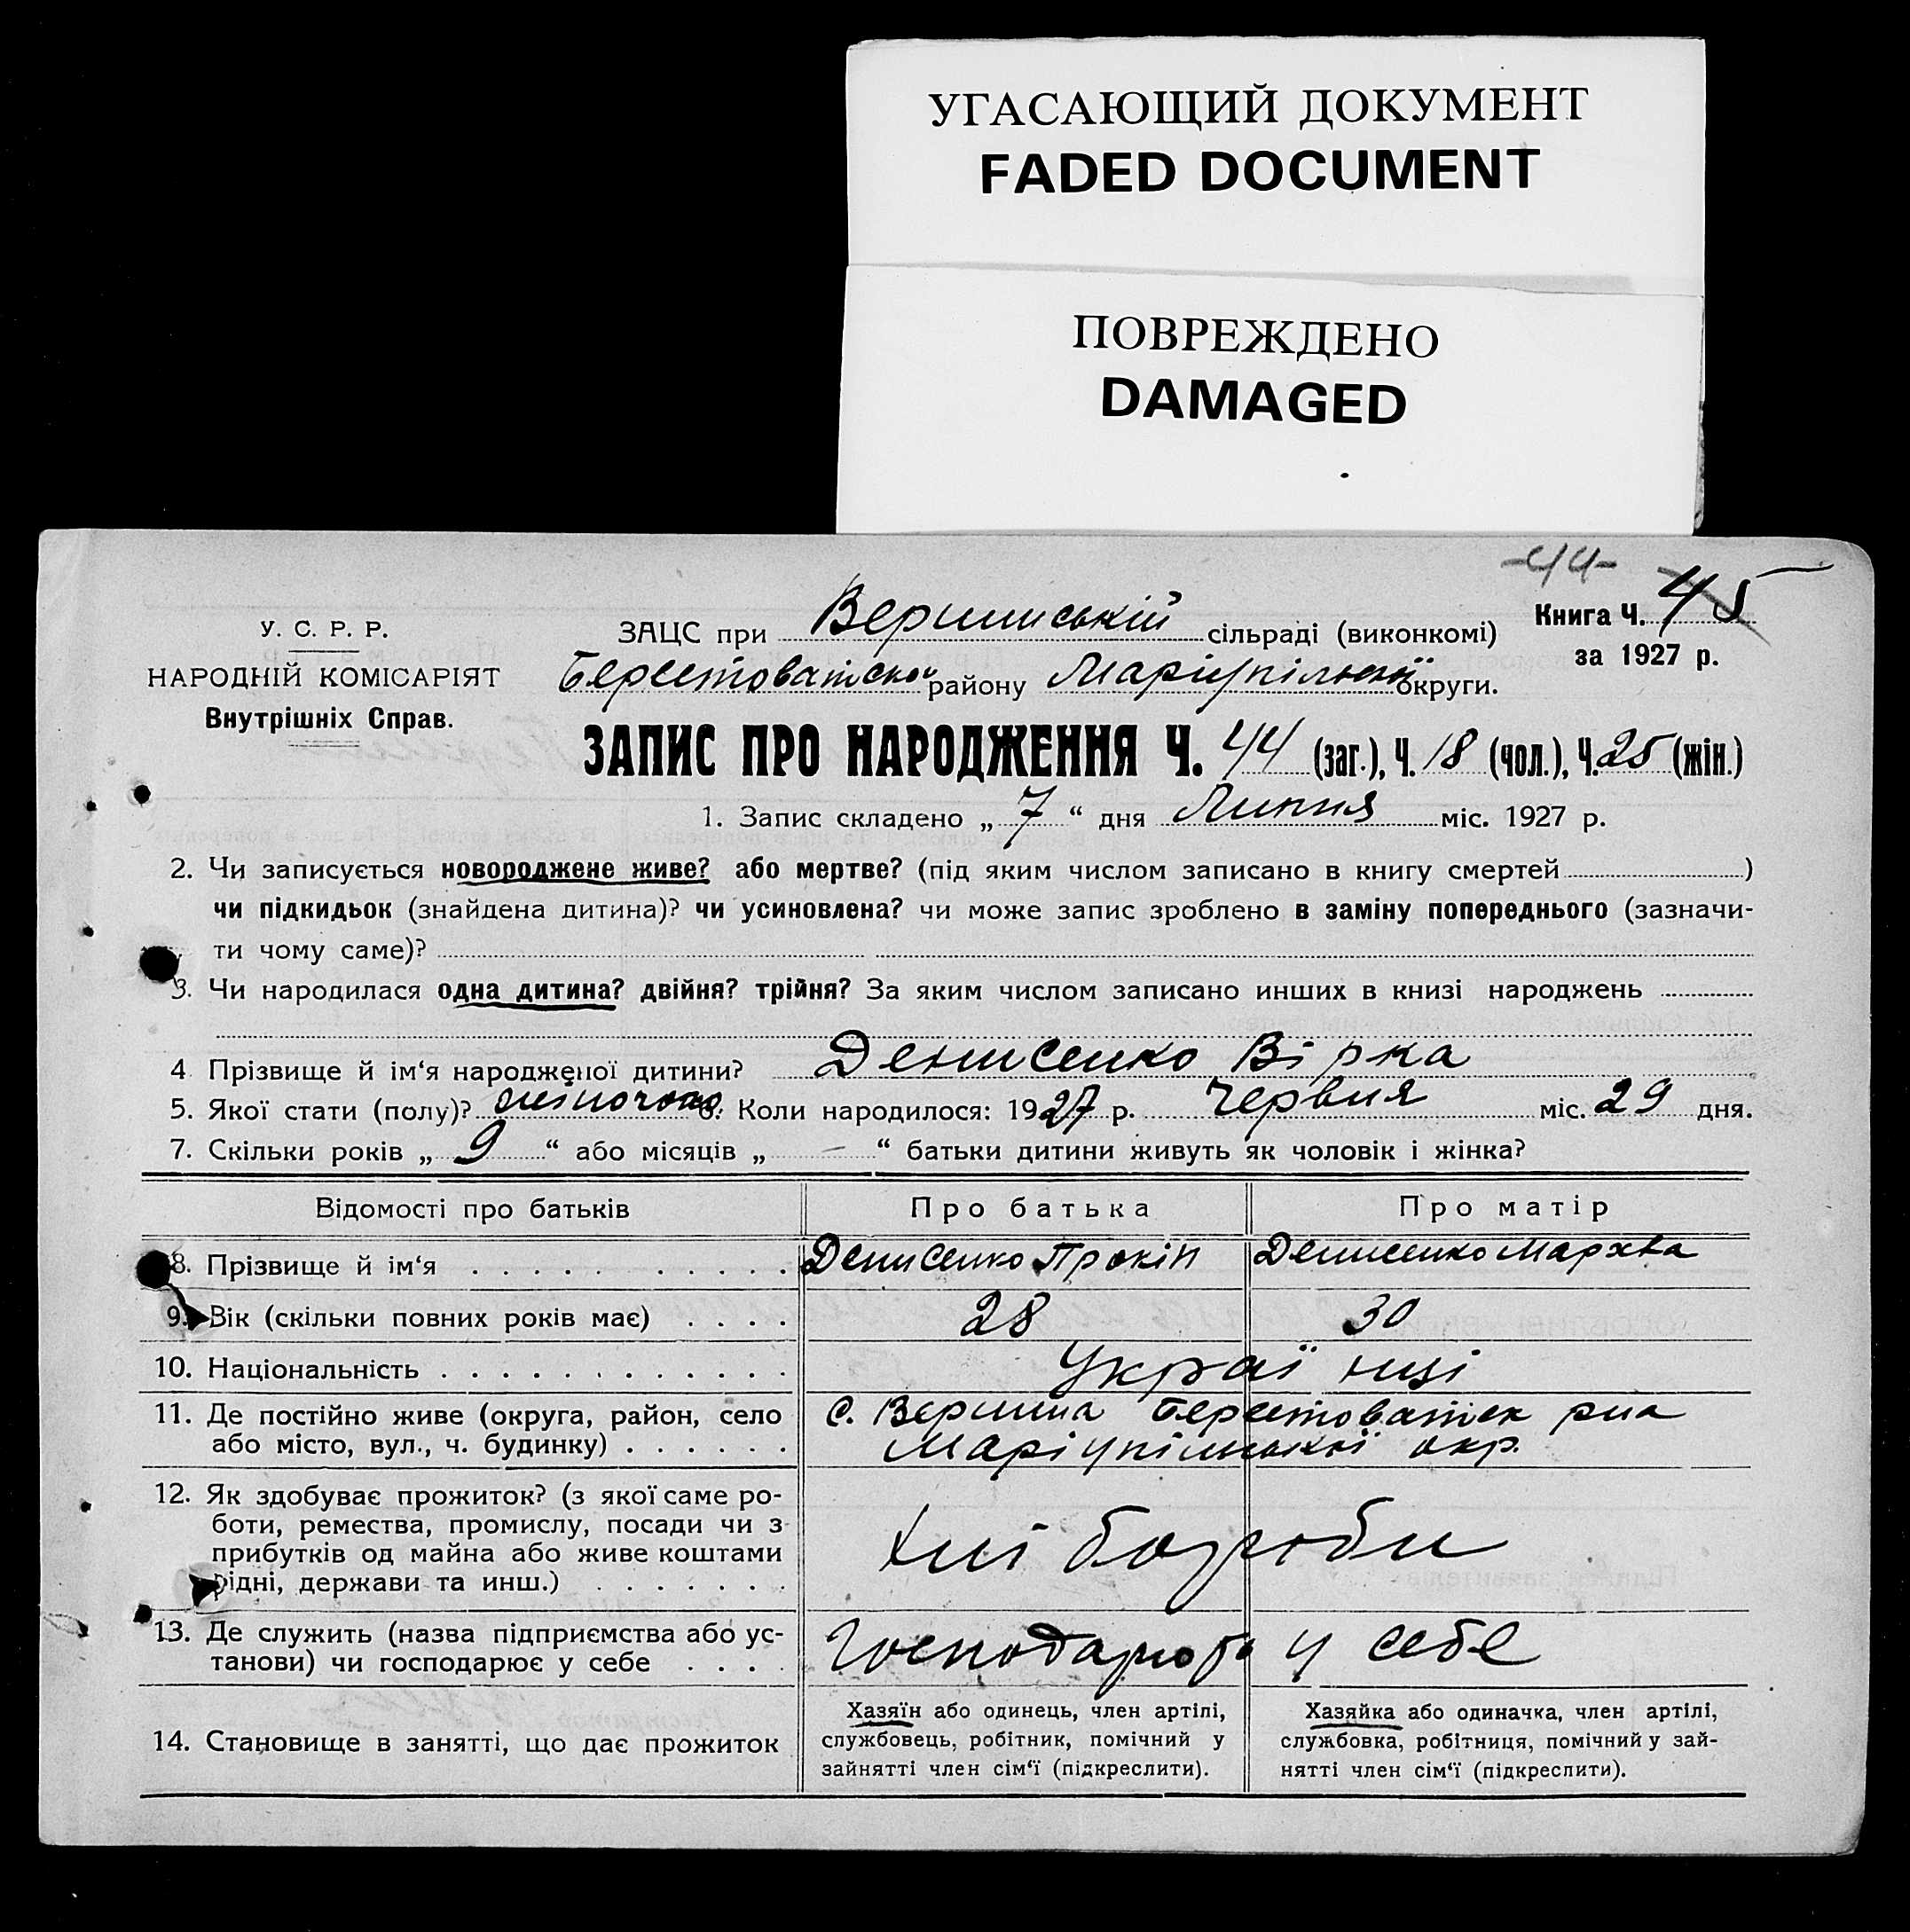 УГАСАЮЩИЙ ДОКУМЕНТ
FADED DOCUMENT
ПОВРЕЖДЕНО
DAMAGED
-44-
У. С. Р. Р.
НАРОДНІЙ КОМІСАРІЯТ
Внутрішніх Справ.
ЗАЦС при Вершинській сільраді (виконкомі)
Книга Ч. 45
за 1927 р.
Берестоватської району Маріупільської округи.
ЗАПИС ПРО НАРОДЖЕННЯ Ч. 44 (заг.), Ч. 18 (чол.), Ч. 25 (жін.)
1. Запис складено „ 7 “ дня Липня міс. 1927 р.
2. Чи записується новороджене живе? або мертве? (під яким числом записано в книгу смертей )
чи підкидьок (знайдена дитина)? чи усиновлена? чи може запис зроблено в заміну попереднього (зазначи-
ти чому саме)?
3. Чи народилася одна дитина? двійня? трійня? За яким числом записано инших в книзі народжень
4 Прізвище й ім‘я народженої дитини? Денисенко Вірка
5. Якої стати (полу)? 6. Коли народилося: 1927 р. Червня міс. 29 дня.
7. Скільки років „ 9 “ або місяців „ – “ батьки дитини живуть як чоловік і жінка?
Відомості про батьків Про батька Про матір
8. Прізвище й ім‘я Денисенко Прокіп Денисенко Мархва
9. Вік (скільки повних років має) 28 30
10. Національність Украї нці
11. Де постійно живе (округа, район, село
або місто, вул., ч. будинку)
с. Вершина Берестоватск рна
Маріупільської окр.
12. Як здобуває прожиток? (з якої саме ро-
боти, ремества, промислу, посади чи з
прибутків од майна або живе коштами
рідні, держави та инш.)
Хлі бороби
13. Де служить (назва підприємства або ус-
танови) чи господарює у себе
у себе
14. Становище в занятті, що дає прожиток
Хазяїн або одинець, член артілі,
службовець, робітник, помічний у
зайнятті член сім‘ї (підкреслити).
Хазяйка або одиначка, член артілі,
службовка, робітниця, помічний у зай-
нятті член сім‘ї (підкреслити).